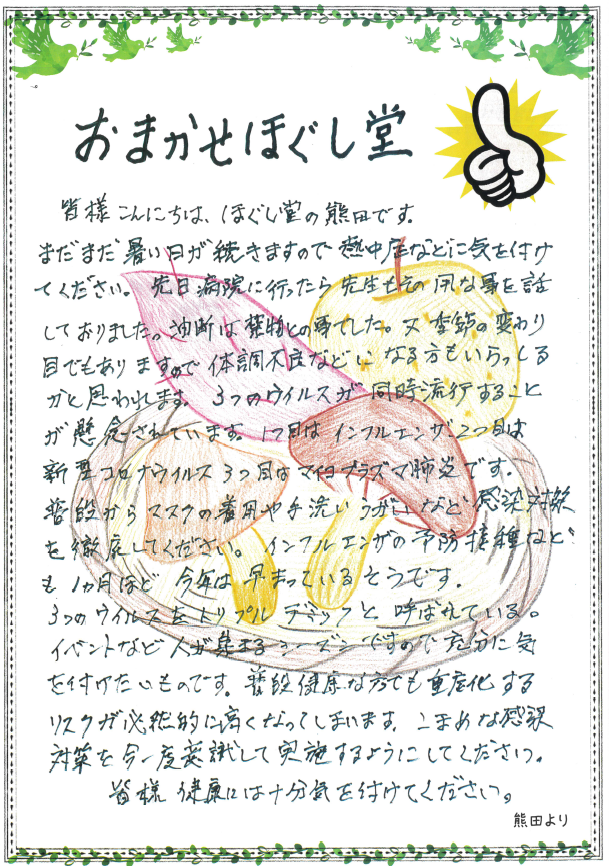 おまかせほぐし堂
皆様こんにちは、ほぐし堂の熊田です。
まだまだ暑い日が続きますので熱中症などに気を付け
てください。先日病院に行ったら先生もその用な事を話
しておりました。油断は禁物との事でした。又季節の変わり
目でもありますので体調不良などになる方もいらっしる
かと思われます。3つのウイルスが同時流行すること
が懸念されています。1つ目はインフルエンザ2つ目は
新型コロナウイルス3つ目はマイコプラズマ肺炎です。
普段からマスクの着用や手洗いうがいなど感染対策
を徹底してください。インフルエンザの予防接種など
も1カ月ほど今年は早まっているそうです。
3つのウイルスをトリプルデミックと呼ばれている。
イベントなど人が集まるシーズンですので充分に気
を付けたいものです。普段健康な方でも重症化する
リスクが必然的に高くなってしまいます。こまめな感染
対策を今一度意識して実施するようにしてください。
皆様健康には十分気を付けてください。
熊田より